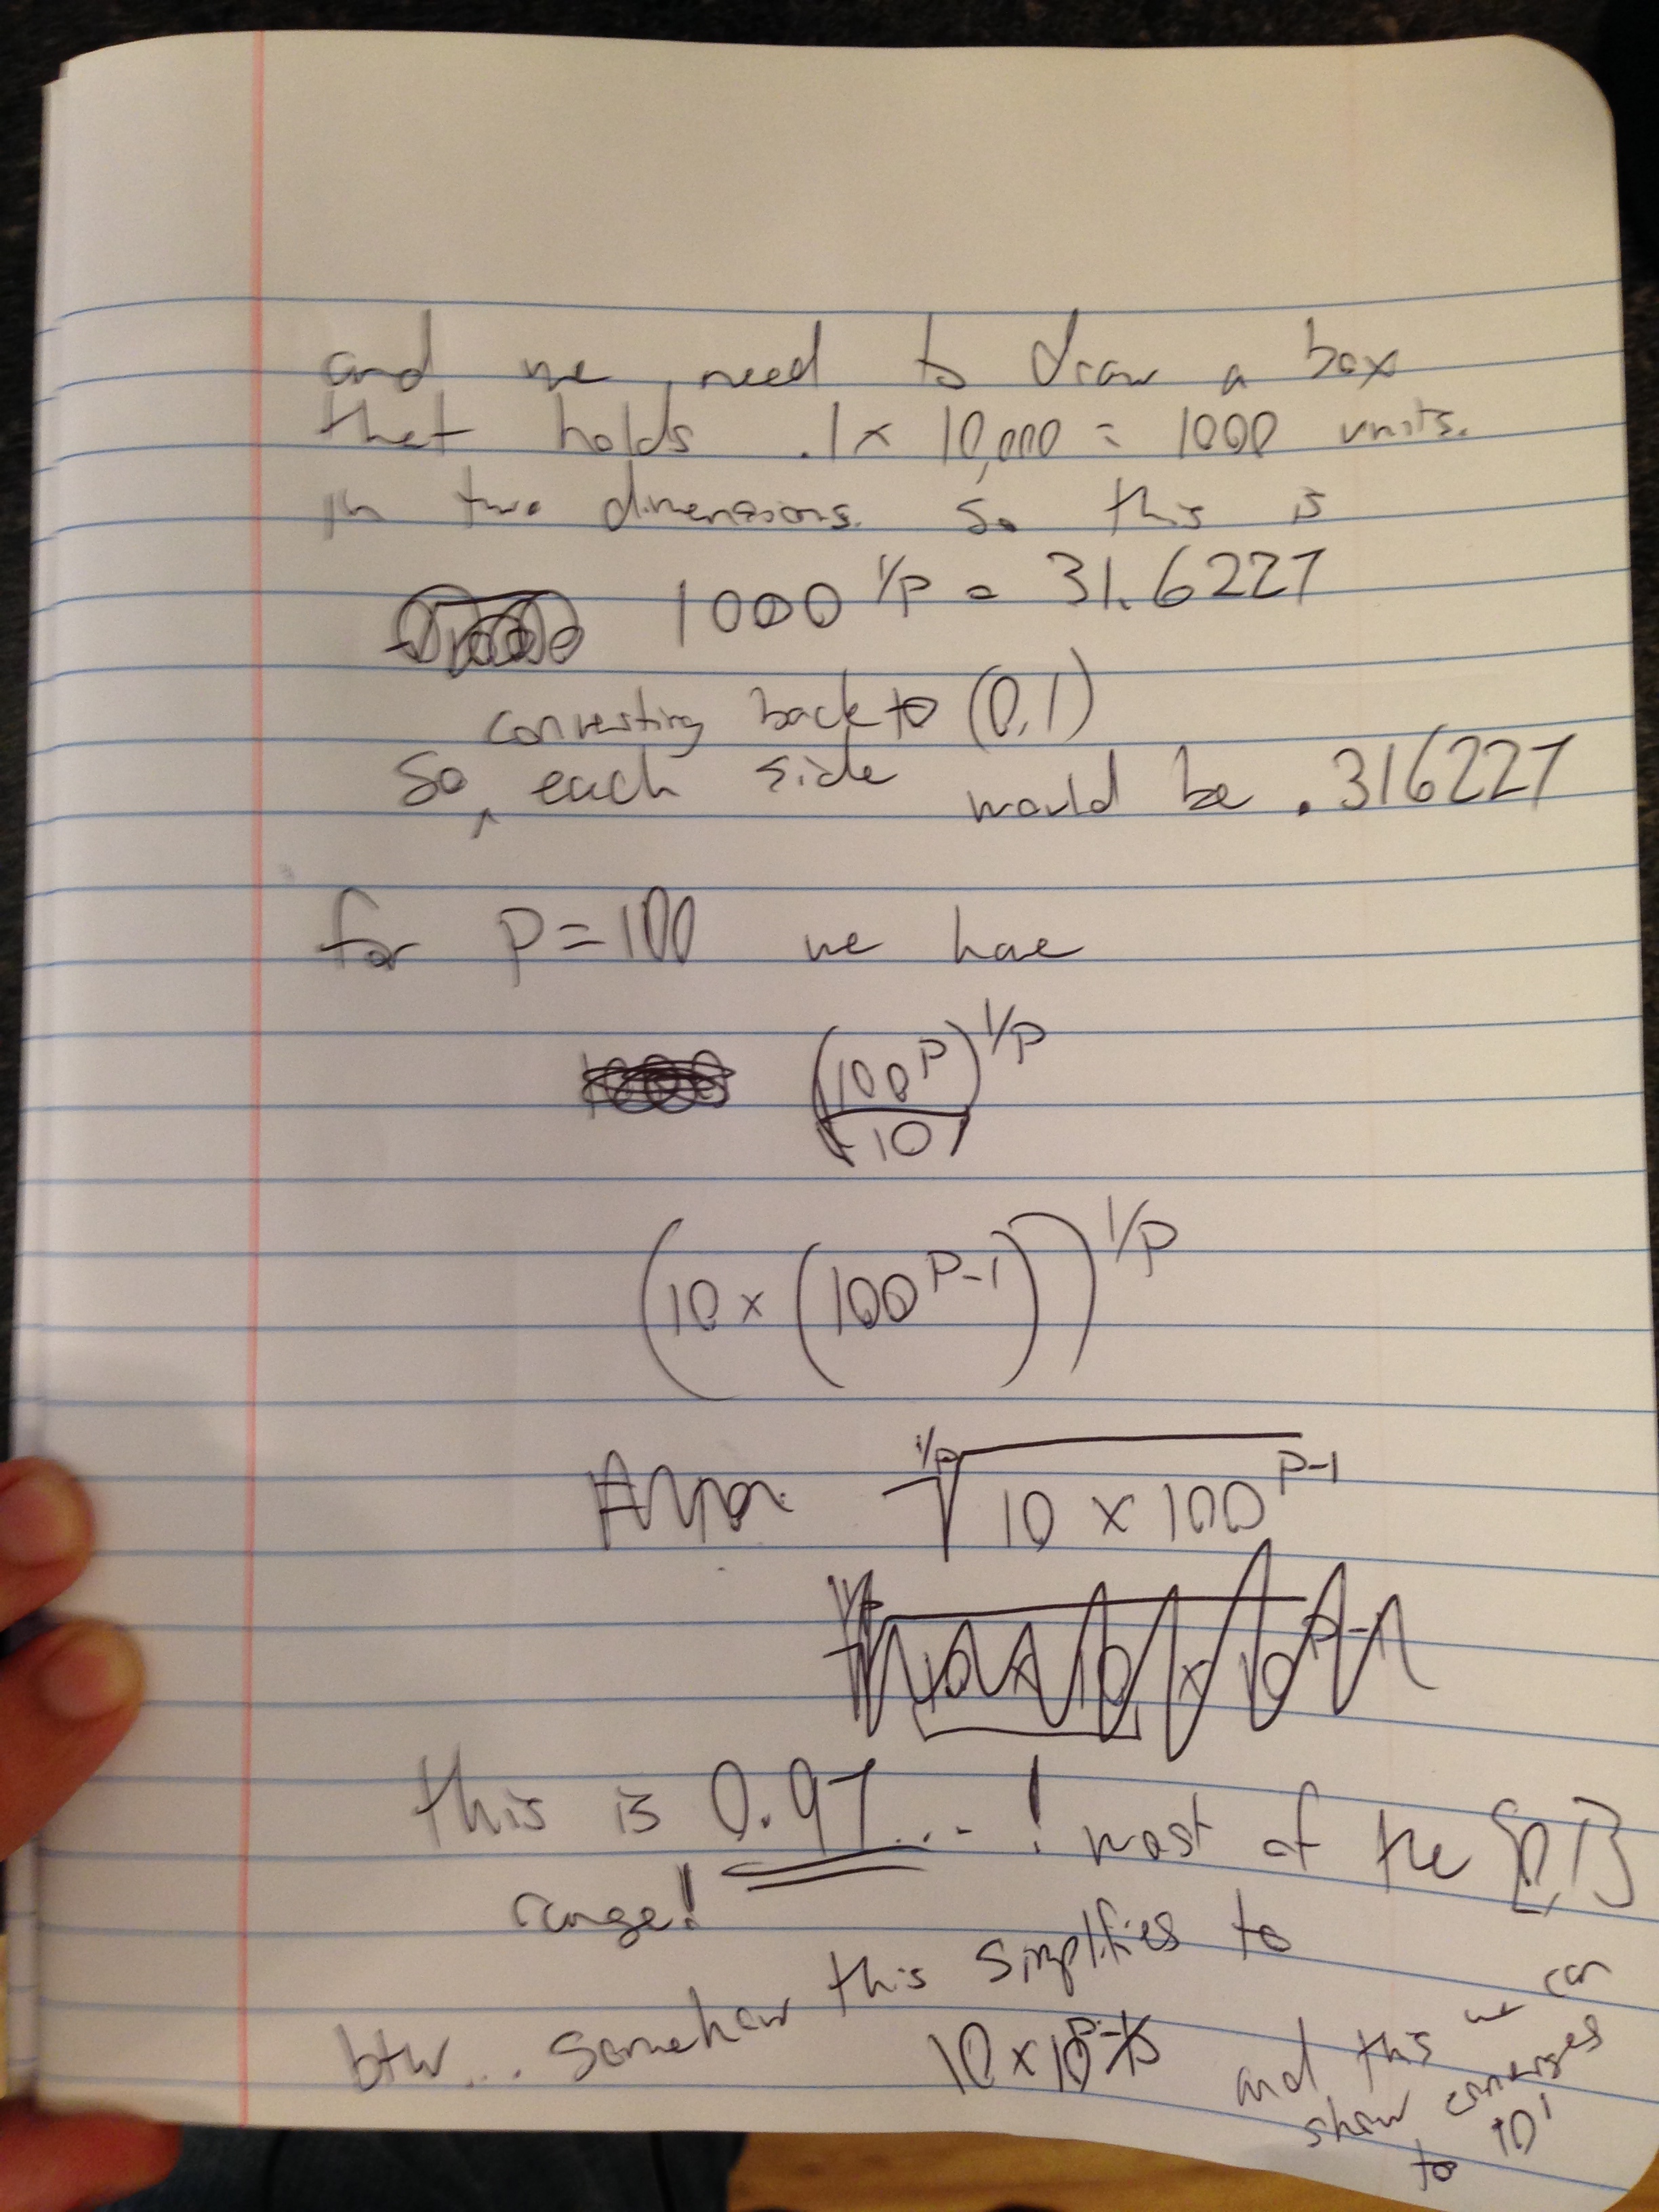 and we need to draw a box
that holds .1 x 10,000 = 1000 units.
in two dimensions. So this is
1000^1/p = 31.6227
converting back to (0,1)
So ^ each side would be .316227
for p=100 we have
(100^p / 10)^1/p
(10 x (100^p-1))^1/p
1/p√10 x 100^p-1
this is 0.97...! most of the [0,1]
range!
btw... somehow this simplifies to
10 x 10 and this we can
show converges
to 10^1